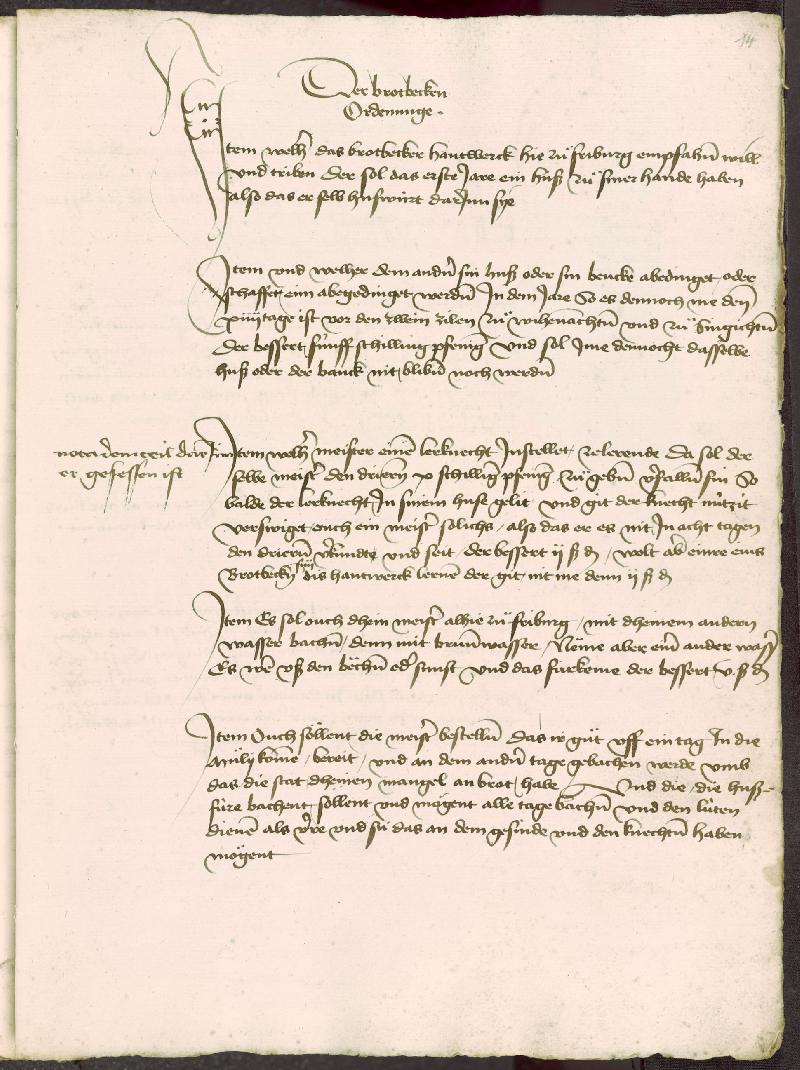 14
Der brotbecken
Ordenunge
Item welh̄ das brotbecker hantwerck hie zu͗ friburg empfahn̄ will
vnd triben der sol das erste Jare ein huß zu͗ siner hande haben
also das er selb huswirt dar Inn sye
Item vnd welher dem andn̄ sin huß oder sin bencke abedinget oder
schaffet eim abegedinget werdn̄ In dem Jare So es dennoch me den̄
xiiij tage ist vor den zwein zilen zu͗ wihenachtn̄ vnd zu͗ Singichtn̄
Der bessert fünff schilling pfenig vnd sol Jme dennocht dasselbe
huß oder der banck nit blibn̄ noch werdn̄
nota dem teil dar Jnn
er gesessen ist
Item welh̄ meister einē lerknecht Jnstellet zelerende Da sol der
selbe meist̄ den driern̄ x schillig pfenig zu͗ gebn̄ v̄falln̄ sin So
balde der lerknecht Jn sinem huse gelit vnd git der knecht nützit
verswiget ouch ein meist̄ solichs also das er es nit Jn acht tagen
den driern̄ v̄kundte vnd seit der bessert ij ß d wolt ab̄ einre eins
Brotbeckē sun dis hantwerck lernē der git nit me denn ij ß d
Item Es sol ouch dhein meist̄ alhie zu͗ friburg mit dheinem andern
wasser bachn̄ denn mit brun̄wasser Neme aber ein̄ ander wass̄
Es wē vß den bechn̄ od̄ sunst vnd das fürkeme der bessert v ß d
Item Ouch söllent die meist̄ bestelln̄ das ir gut vff ein tag In die
müly kome bereit vnd an dem andn̄ tage gebachen werde vmb
das die stat dheinen mangel an brot habe Vnd die die huß-
füre bachent sollent vnd mögent alle tage bachn̄ vnd den lüten
dienē als v̄re vnd sú das an dem gesinde vnd den knechtn̄ haben
mögent